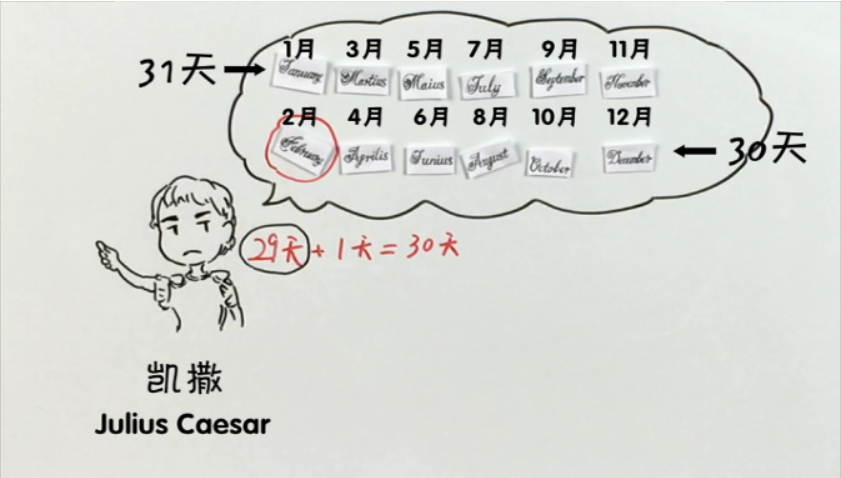 1月 3月 5月 7月 9月 11月
31天
January Martius Maius July September November
2月 4月 6月 8月 10月 12月
February Aprilis Junius August October December
30天
29天+1天=30天
凯撒
Julius Caesar